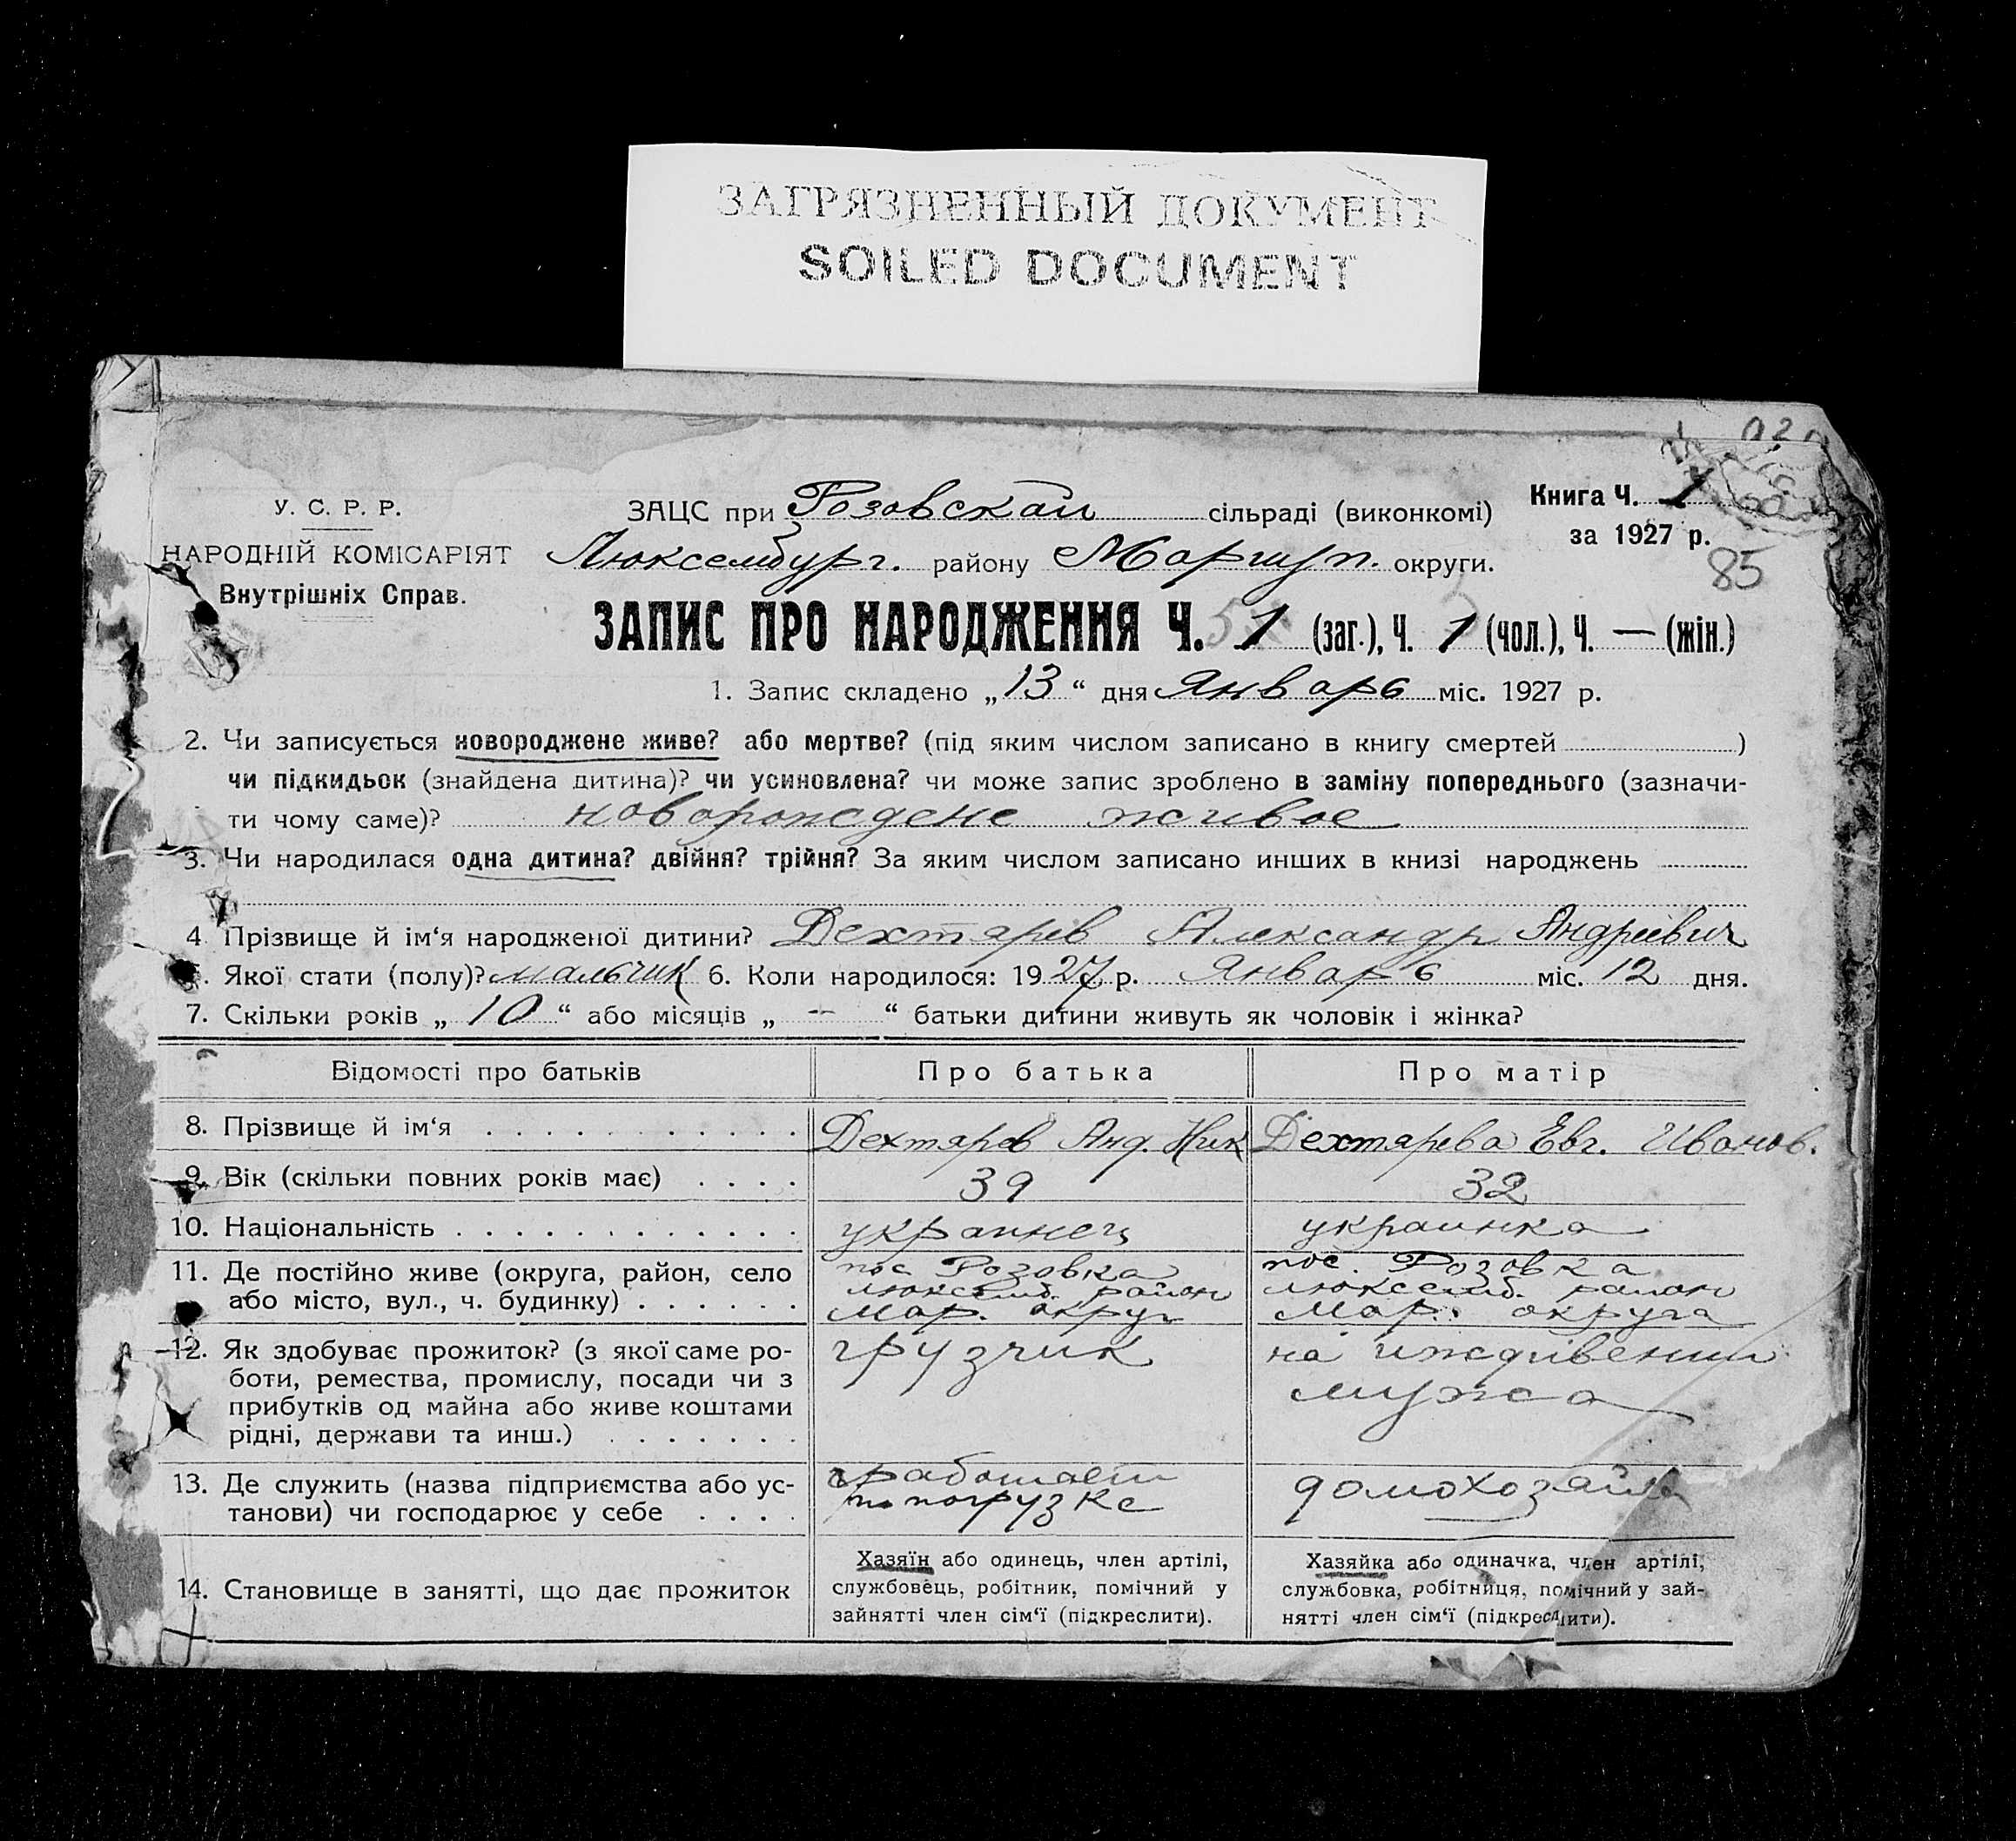 ЗАГРЯЗНЕННЫЙ ДОКУМЕНТ
SOILED DOCUMENT
У. С. Р. Р.
НАРОДНІЙ КОМІСАРІЯТ
Внутрішніх Справ.
ЗАЦС при Розовской сільраді (виконкомі)
Люксембург. району Мариуп. округи.
Книга Ч. 1
за 1927 р.
85
ЗАПИС ПРО НАРОДЖЕННЯ Ч. 1 (заг.), Ч. 1 (чол.), Ч. — (жін.)
1. Запис складено „13“ дня Январь міс. 1927 р.
2. Чи записується новороджене живе? або мертве? (під яким числом записано в книгу смертей )
чи підкидьок (знайдена дитина)? чи усиновлена? чи може запис зроблено в заміну попереднього (зазначи-
ти чому саме)? новорождене живое
3. Чи народилася одна дитина? двійня? трійня? За яким числом записано инших в книзі народжень
4. Прізвище й ім‘я народженої дитини? Дехтярев Александр Андреевич
5. Якої стати (полу)? мальчик 6. Коли народилося: 1927 р. Январь міс. 12 дня.
7. Скільки років „10“ або місяців „—“ батьки дитини живуть як чоловік і жінка?
Відомості про батьків Про батька Про матір
8. Прізвище й ім‘я Дехтярев Анд. Ник Дехтярева Евг. Иванов.
9. Вік (скільки повних років має) 39 32
10. Національність украинец украинка
11. Де постійно живе (округа, район, село
або місто, вул., ч. будинку)
пос. Розовка
люксемб. район
Мар. округ
пос. Розовка
люксемб. район
Мар. округа
12. Як здобуває прожиток? (з якої саме ро-
боти, ремества, промислу, посади чи з
прибутків од майна або живе коштами
рідні, держави та инш.)
грузчик
на иждивении
мужа
13. Де служить (назва підприємства або ус-
танови) чи господарює у себе
работает
по погрузке
домохозяйка
14. Становище в занятті, що дає прожиток
Хазяїн або одинець, член артілі,
службовець, робітник, помічний у
зайнятті член сім‘ї (підкреслити).
Хазяйка або одиначка, член артілі,
службовка, робітниця, помічний у зай-
нятті член сім‘ї (підкреслити).